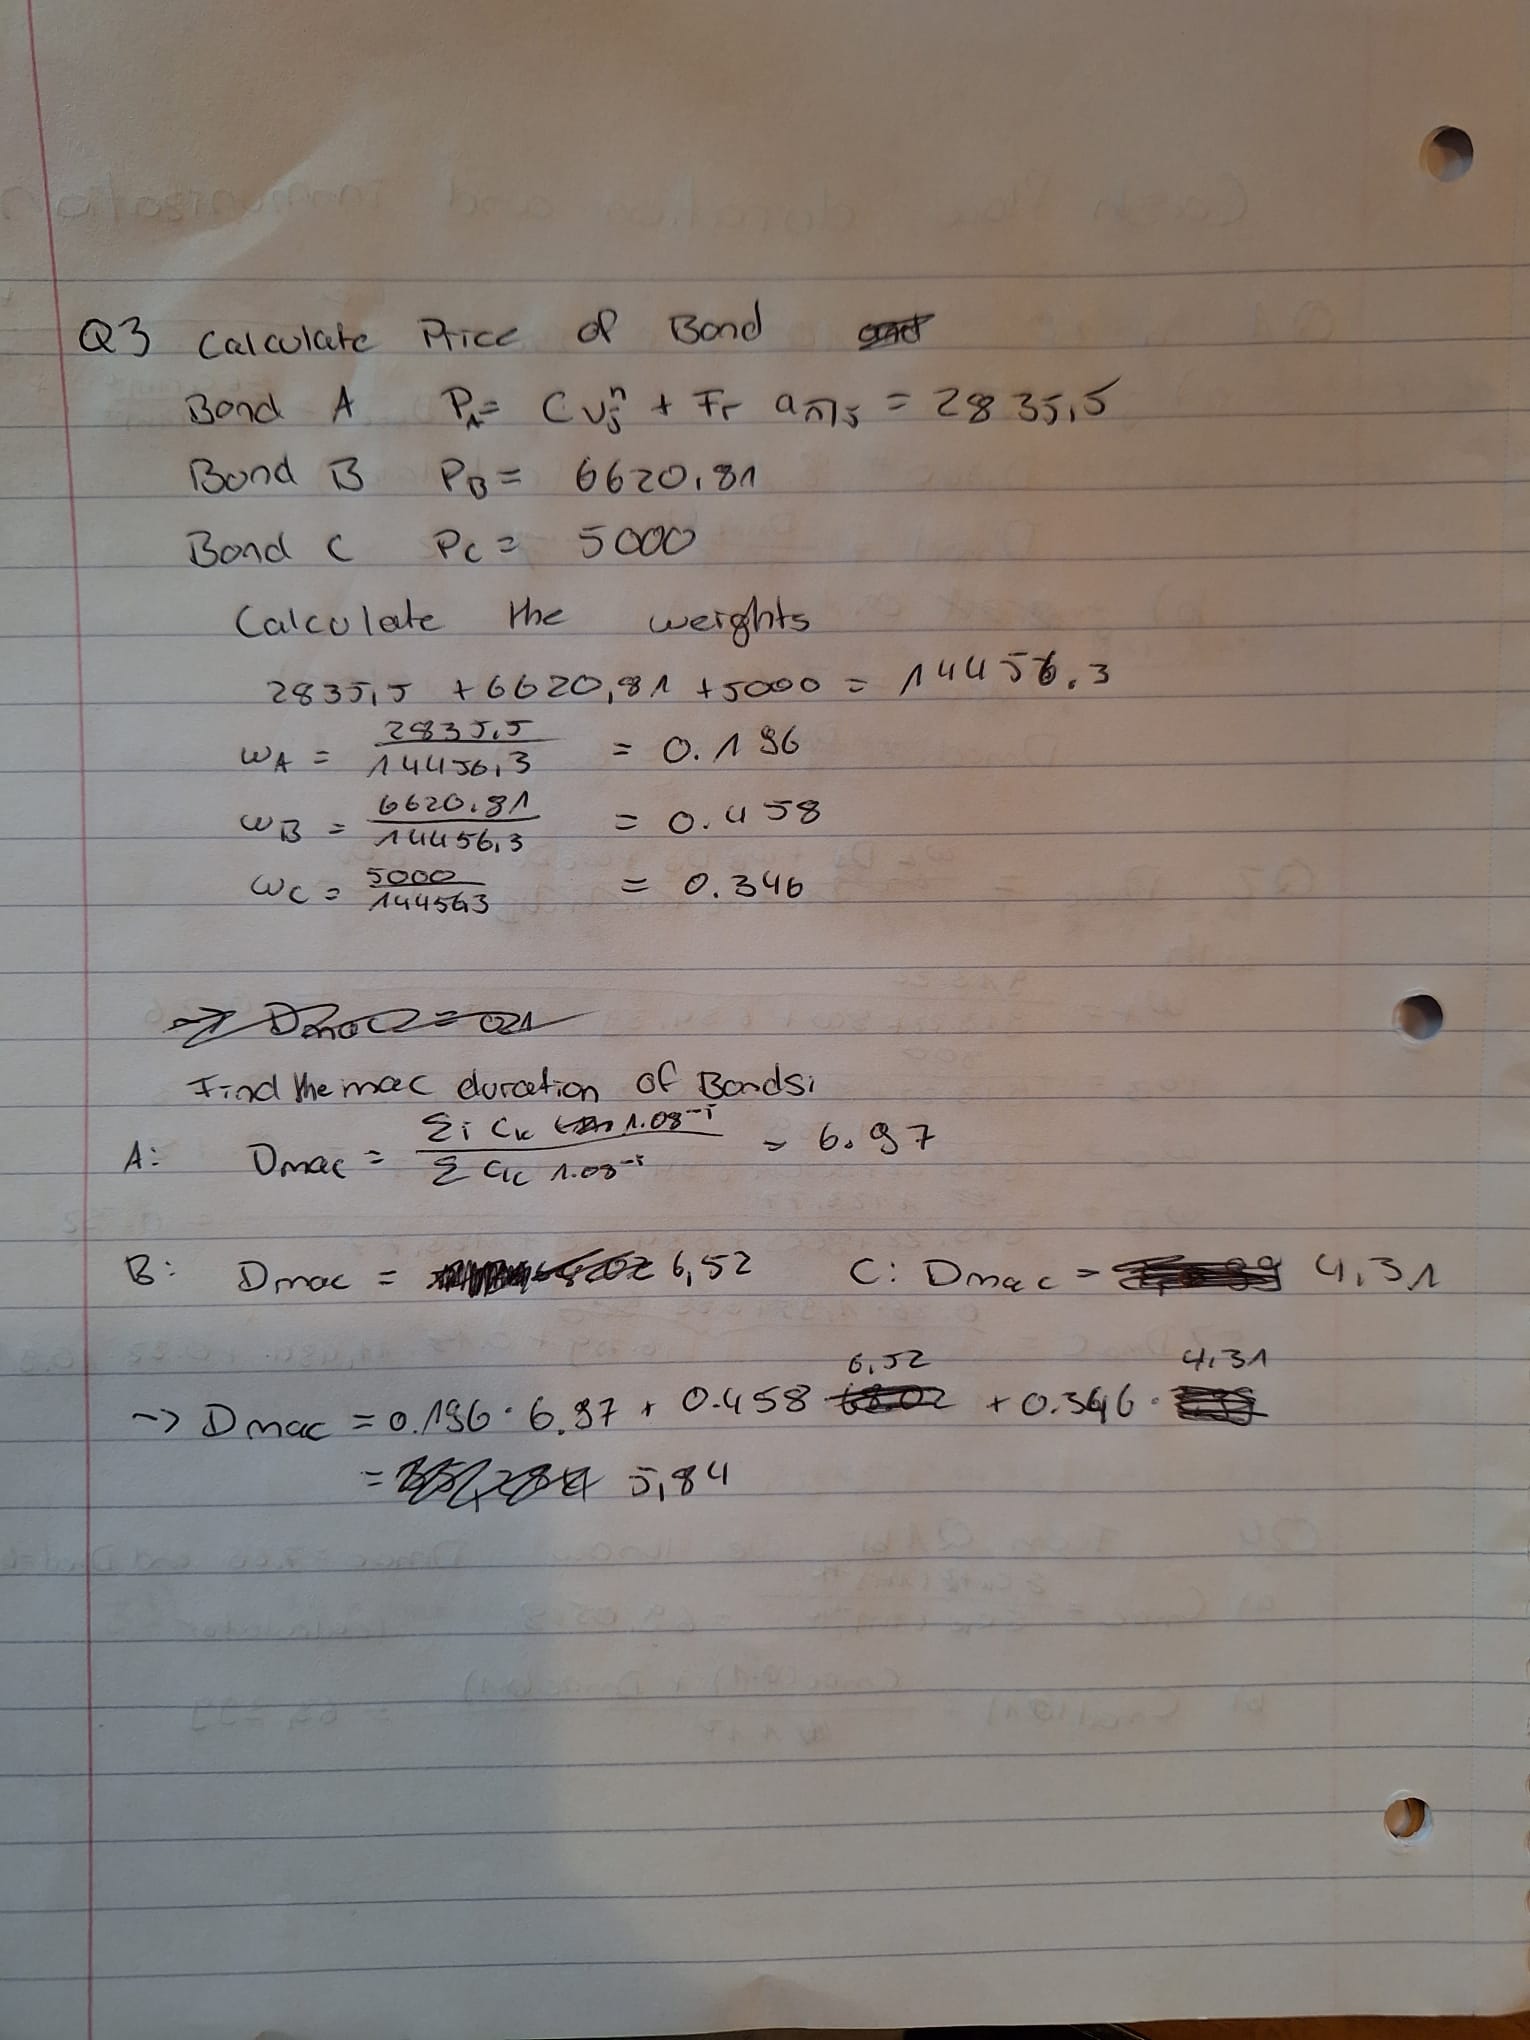 Q3 Calculate Price of Bond
Bond A P_A = C v_j^n + Fr a_n̅|j = 2835,5
Bond B P_B = 6620,81
Bond C P_C = 5000
Calculate the weights
2835,5 + 6620,81 + 5000 = 14456.3
ω_A = 2835,5 / 14456,3 = 0.196
ω_B = 6620.81 / 14456,3 = 0.458
ω_C = 5000 / 14456,3 = 0.346
→ Dmac = 0.1
Find the mac duration of Bonds:
A: Dmac = Σ i C_k 1.08^-i / Σ C_k 1.08^-i = 6.97
B: Dmac = 6,52 C: Dmac = 4,31
6,52 4,31
→ Dmac = 0.196 · 6.97 + 0.458 + 0.346 ·
= 5,84